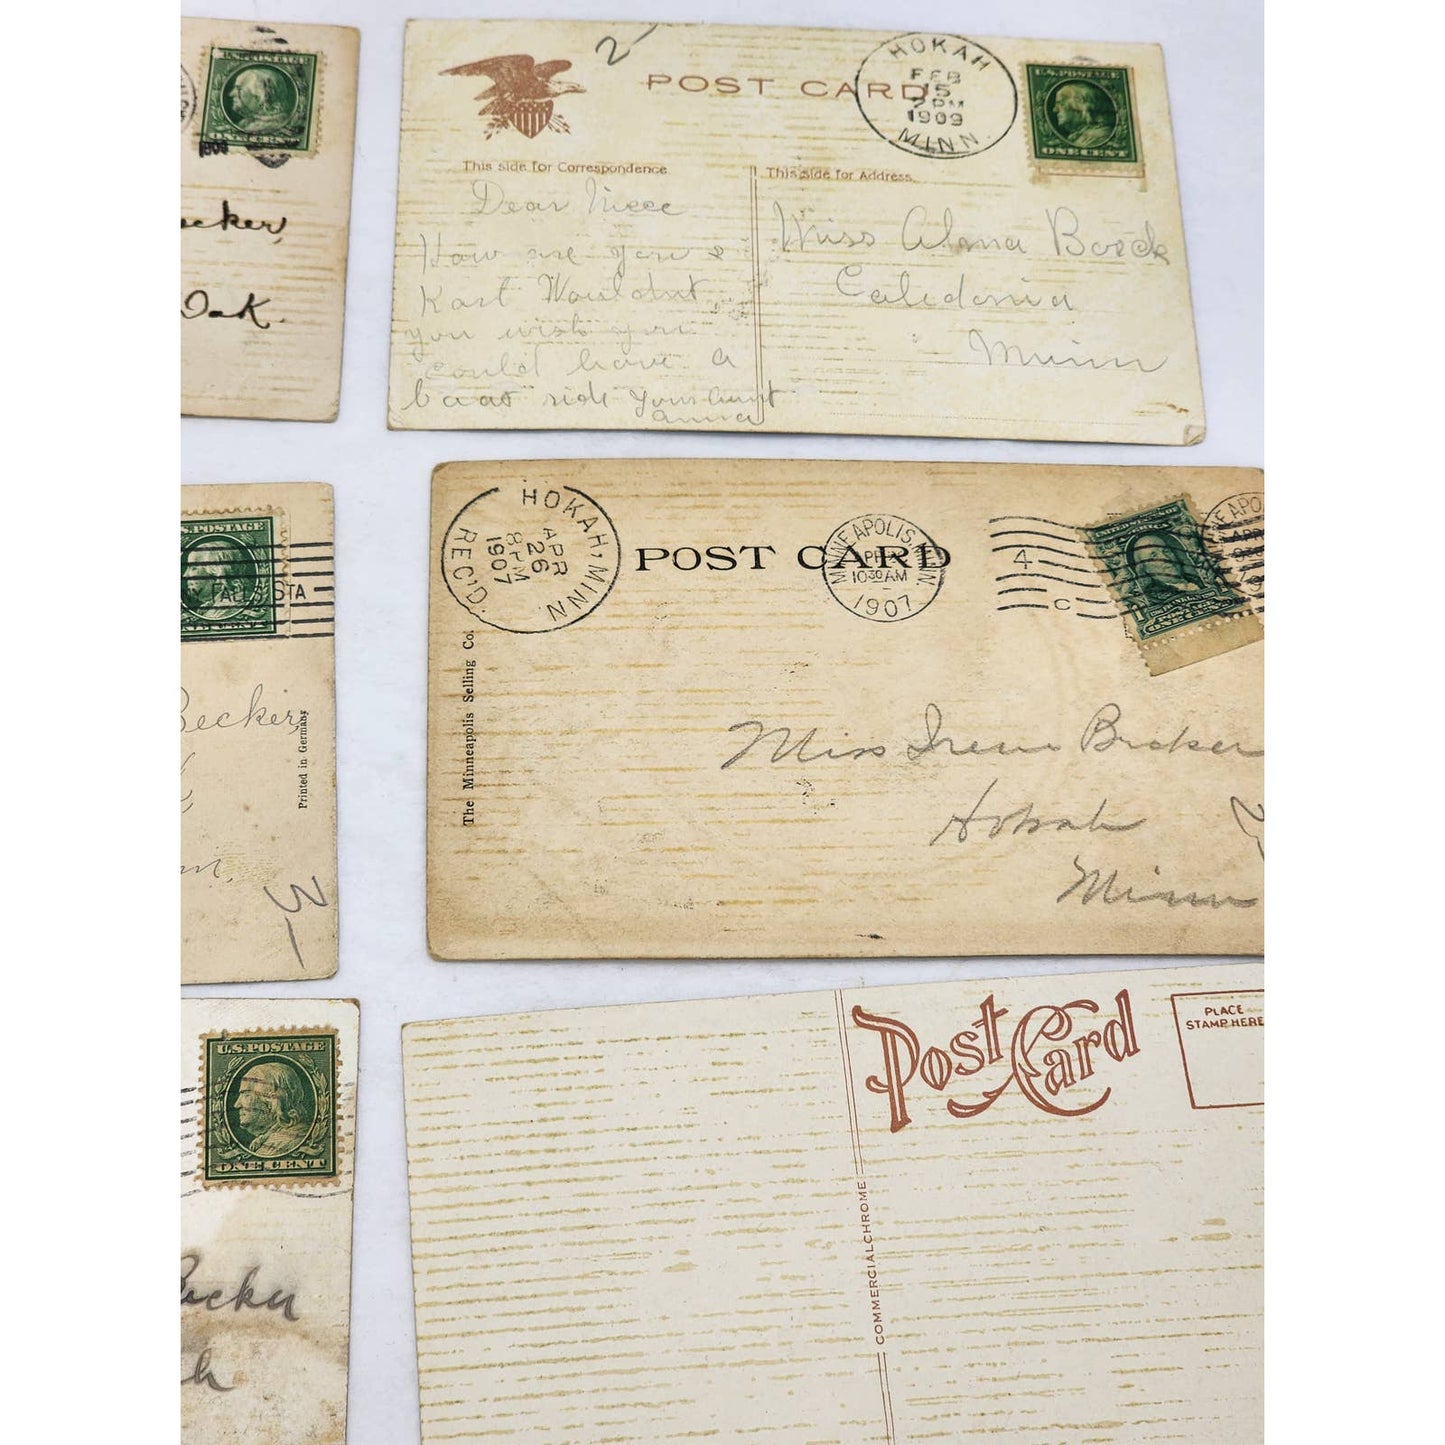 U.S. POSTAGE
1909
ecker,
Oak.
2
POST CARD
HOKAH
FEB
15
2 PM
1909
MINN.
U.S. POSTAGE
ONE CENT
This side for Correspondence
This side for Address.
Dear Niece
How are you &
Karl Wouldnt
you wish you
could have a
boat ride Your Aunt
Anna
Miss Alma Bock
Caledonia
Minn
S. POSTAGE
FALLS STA
ONE CENT
Becker,
Printed in Germany
nn.
3
HOKAH, MINN
APR
26
8 PM
1907
REC'D.
POST CARD
MINNEAPOLIS, MINN.
10 30 AM
1907
4
C
ONE CENT
The Minneapolis Selling Co.
Miss Irene Becker
Hokah
Minn
U.S. POSTAGE
ONE CENT
Becker
h
Post Card
PLACE
STAMP HERE
COMMERCIALCHROME